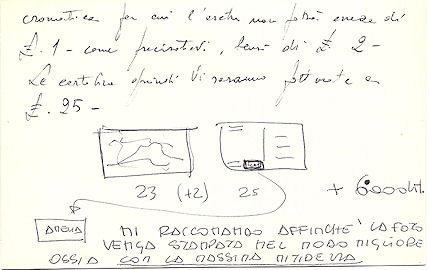 cromatica per cui l'extra non potrà essere di
£. 1 - come precisatovi, bensì di £ 2 -
Le cartoline quindi Vi saranno fatturate a
£. 25 -
23 (+2) 25 + 6000
MI RACCOMANDO AFFINCHÈ LA FOTO
VENGA STAMPATA NEL MODO MIGLIORE
OSSIA CON LA MASSIMA NITIDEZZA.